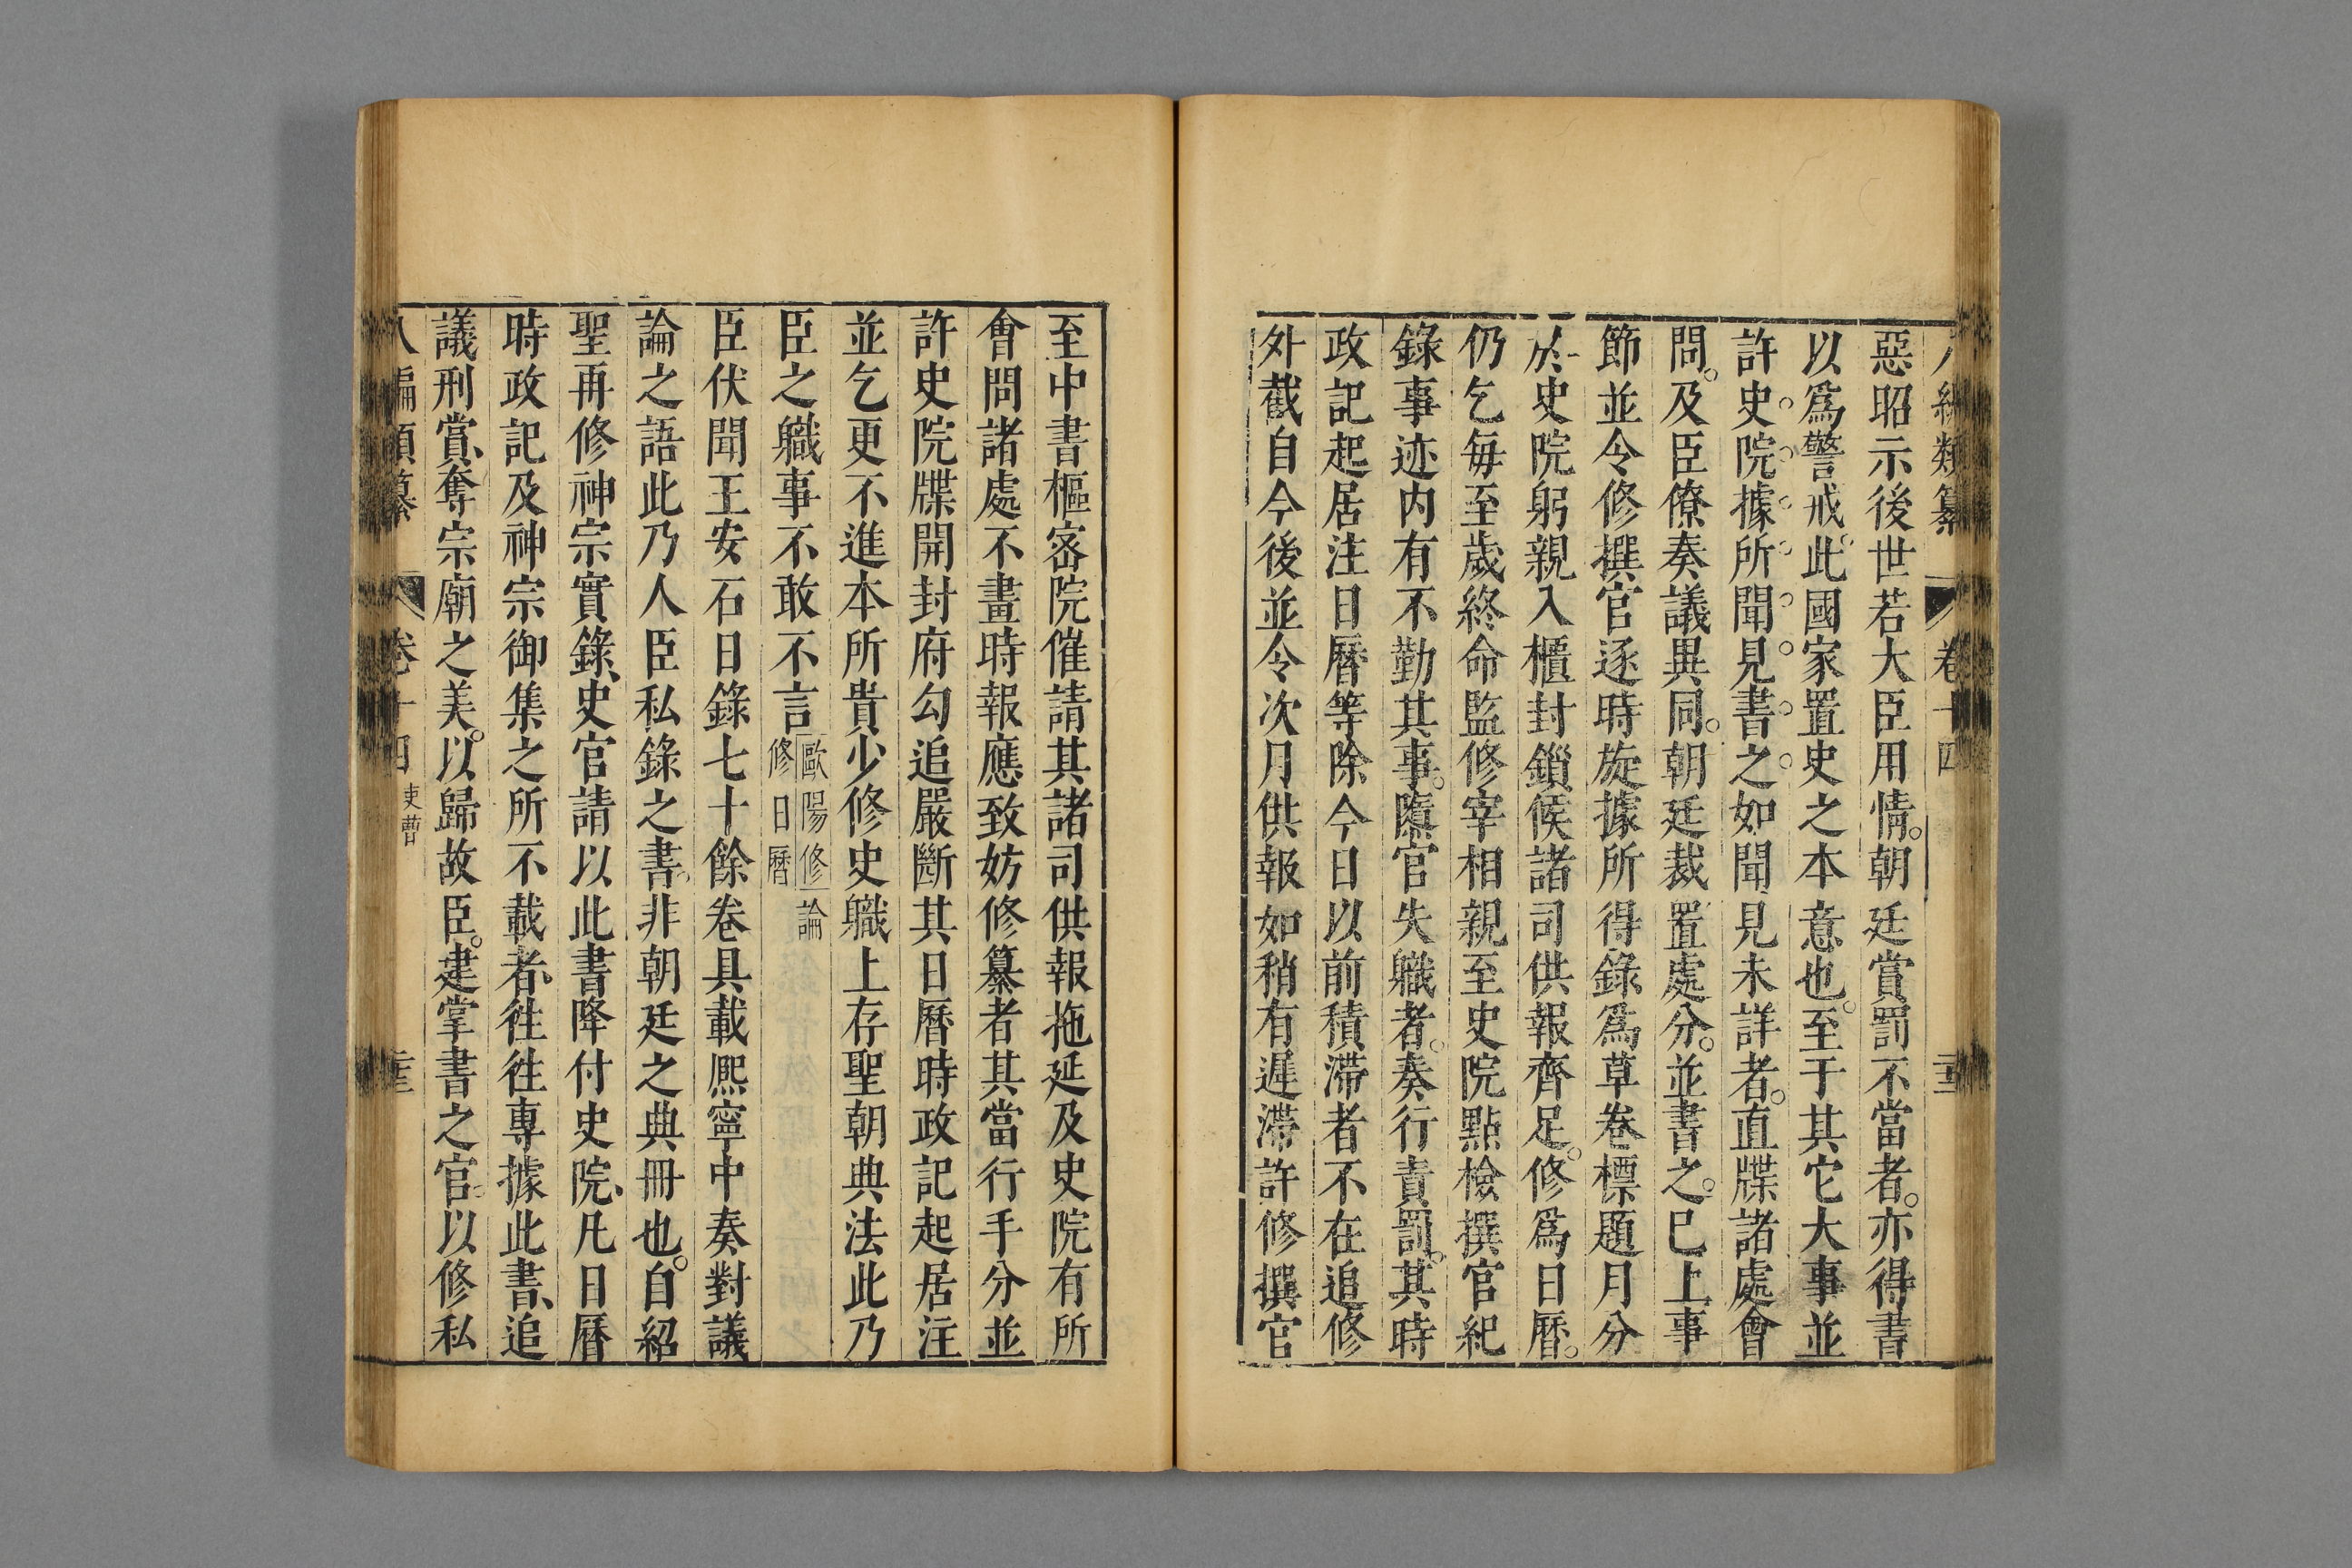 八編類纂 卷十四 二十三
惡昭示後世若大臣用情。朝廷賞罰不當者。亦得書
以爲警戒。此國家置史之本意也。至于其它大事並
許史院據所聞見書之如聞見未詳者。直牒諸處會
問。及臣僚奏議異同。朝廷裁置處分。並書之。巳上事
節並令修撰官逐時旋據所得錄爲草卷標題月分
於史院躬親入櫃封鎖候諸司供報齊足。修爲日曆。
仍乞每至歲終命監修宰相親至史院點檢撰官紀
錄事迹内有不勤其事。隳官失職者。奏行責罰。其時
政記起居注日曆等除今日以前積滯者不在追修
外截自今後並令次月供報如稍有遲滯許修撰官
至中書樞宻院催請其諸司供報拖延及史院有所
會問諸處不畫時報應致妨修纂者其當行手分並
許史院牒開封府勾追嚴斷其日曆時政記起居注
並乞更不進本所貴少修史職上存聖朝典法此乃
臣之職事不敢不言 歐陽修論修日曆
臣伏聞王安石日錄七十餘卷具載熈寧中奏對議
論之語此乃人臣私錄之書。非朝廷之典冊也。自紹
聖再修神宗實錄、史官請以此書降付史院、凡日曆
時政記及神宗御集之所不載者、徃徃專據此書、追
議刑賞、奪宗廟之美。以歸故臣。建掌書之官。以修私
八編類纂 卷十四 吏曹 二十三